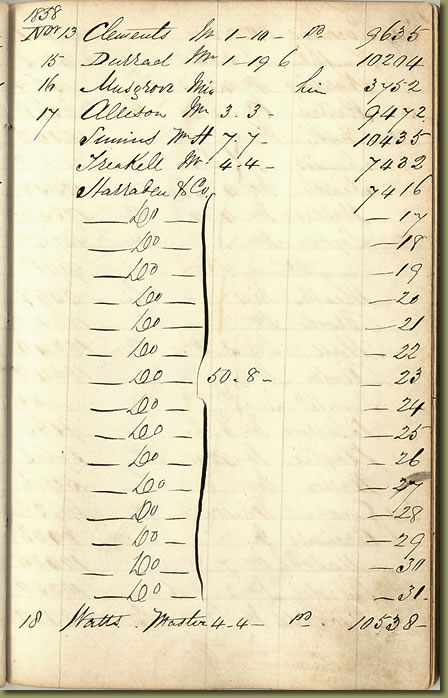 1838
Nov 13 Clements Mr 1-10- pd 9635
15 Durrad Mr 1-19 6 10204
16 Musgrove Miss hire 3752
17 Allison Mr 3.3- 9472
Simins Wm H 7.7- 10435
Treakell Mr 4.4- 7432
Harraden & Co. 7416
— Do — — 17
— Do — — 18
— Do — — 19
— Do — — 20
— Do — — 21
— Do — — 22
— Do — 50.8- — 23
— Do — — 24
— Do — — 25
— Do — — 26
— Do — — 27
— Do — — 28
— Do — — 29
— Do — — 30
— Do — — 31
18 Watts. Master 4-4- pd. 10538-